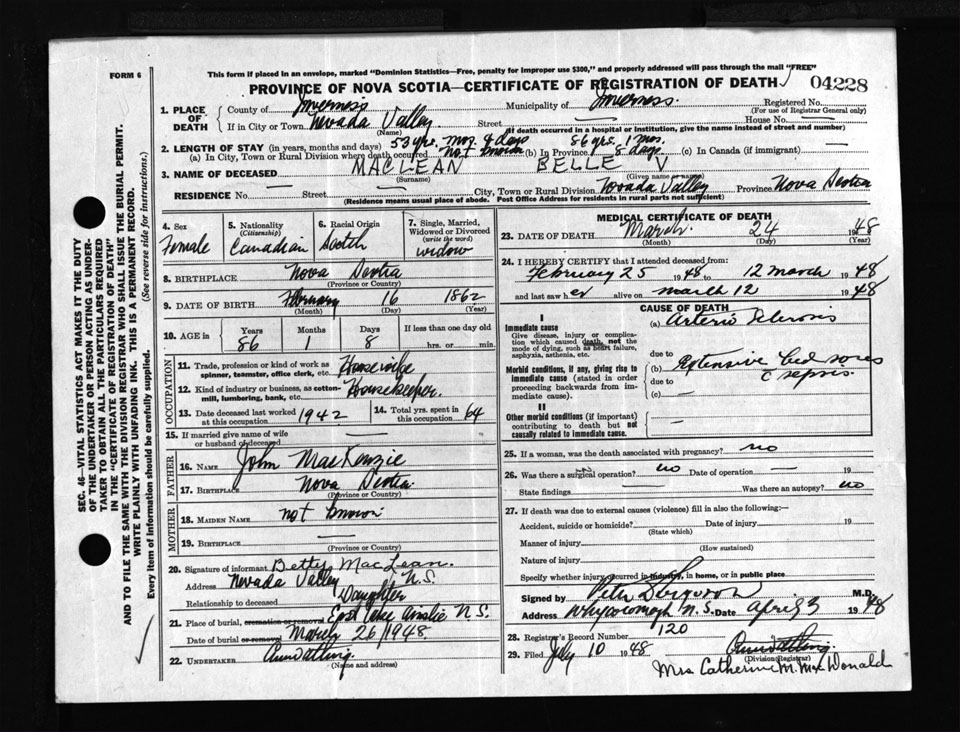 FORM 6
This form if placed in an envelope, marked "Dominion Statistics—Free, penalty for improper use $300," and properly addressed will pass through the mail "FREE"
PROVINCE OF NOVA SCOTIA—CERTIFICATE OF REGISTRATION OF DEATH 04228
1. PLACE OF DEATH
County of Inverness Municipality of Inverness. Registered No.
(For use of Registrar General only)
If in City or Town Nevada Valley Street — House No. —
(Name) (If death occurred in a hospital or institution, give the name instead of street and number)
2. LENGTH OF STAY (in years, months and days) 53 yrs. mos. 9 days 86 yrs. 1 mos.
(a) In City, Town or Rural Division where death occurred not known (b) In Province 8 days (c) In Canada (if immigrant) —
3. NAME OF DECEASED MACLEAN BELLE V
(Surname) (Given name or names)
RESIDENCE No. — Street — City, Town or Rural Division Nevada Valley Province Nova Scotia
(Residence means usual place of abode. Post Office Address for residents in rural parts not sufficient)
4. Sex
Female
5. Nationality
(Citizenship)
Canadian
6. Racial Origin
Scotch
7. Single, Married, Widowed or Divorced
(write the word)
widow
8. BIRTHPLACE Nova Scotia
(Province or Country)
9. DATE OF BIRTH February 16 1862
(Month) (Day) (Year)
10. AGE in Years Months Days If less than one day old
86 1 8 hrs. or min.
OCCUPATION
11. Trade, profession or kind of work as Housewife
spinner, teamster, office clerk, etc.
12. Kind of industry or business, as cotton- Housekeeper.
mill, lumbering, bank, etc.
13. Date deceased last worked at this occupation 1942
14. Total yrs. spent in this occupation 64
15. If married give name of wife or husband of deceased —
FATHER
16. NAME John MacKenzie
17. BIRTHPLACE Nova Scotia
(Province or Country)
MOTHER
18. MAIDEN NAME not known
19. BIRTHPLACE —
(Province or Country)
20. Signature of informant Betty MacLean.
Address Nevada Valley N.S.
Relationship to deceased Daughter
21. Place of burial, cremation or removal East Lake Ainslie N.S.
Date of burial or removal March 26/1948.
22. UNDERTAKER
(Name and address)
MEDICAL CERTIFICATE OF DEATH
23. DATE OF DEATH March 24 1948
(Month) (Day) (Year)
24. I HEREBY CERTIFY that I attended deceased from:
February 25 1948 to 12 march 1948
and last saw her alive on march 12 1948
CAUSE OF DEATH
I
Immediate cause
Give disease, injury or complication which caused death, not the mode of dying, such as heart failure, asphyxia, asthenia, etc.
(a) Arterio Sclerosis
due to
Morbid conditions, if any, giving rise to immediate cause (stated in order proceeding backwards from immediate cause)
(b) Extensive bed sores
c sepsis.
due to
(c) —
II
Other morbid conditions (if important) contributing to death but not causally related to immediate cause.
—
25. If a woman, was the death associated with pregnancy? no
26. Was there a surgical operation? no Date of operation — 19
State findings — Was there an autopsy? no
27. If death was due to external causes (violence) fill in also the following:—
Accident, suicide or homicide? Date of injury 19
(State which)
Manner of injury
(How sustained)
Nature of injury
Specify whether injury occurred in industry, in home, or in public place
Signed by M.D.
Address Whycocomagh N.S. Date April 3 1948
28. Registrar's Record Number 120
29. Filed July 10 1948
(Division Registrar)
Mrs Catherine M. MacDonald
SEC. 46—VITAL STATISTICS ACT MAKES IT THE DUTY
OF THE UNDERTAKER OR PERSON ACTING AS UNDER-
TAKER TO OBTAIN ALL THE PARTICULARS REQUIRED
IN THE "CERTIFICATE OF REGISTRATION OF DEATH"
AND TO FILE THE SAME WITH THE DIVISION REGISTRAR WHO SHALL ISSUE THE BURIAL PERMIT.
WRITE PLAINLY WITH UNFADING INK. THIS IS A PERMANENT RECORD.
Every item of information should be carefully supplied. (See reverse side for instructions.)